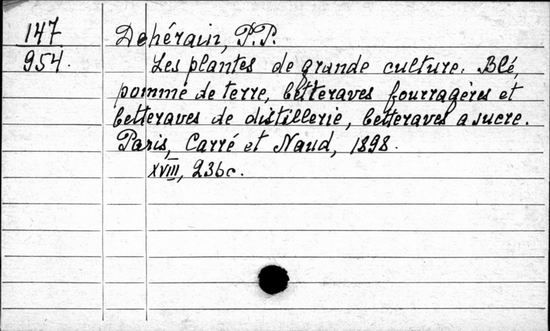 147
954.
Dehérain, P.P.
Les plantes de grande culture. Blé,
pomme de terre, betteraves fourragères et
betteraves de distillerie, betteraves a sucre.
Paris, Carré et Naud, 1898.
XVIII, 236c.